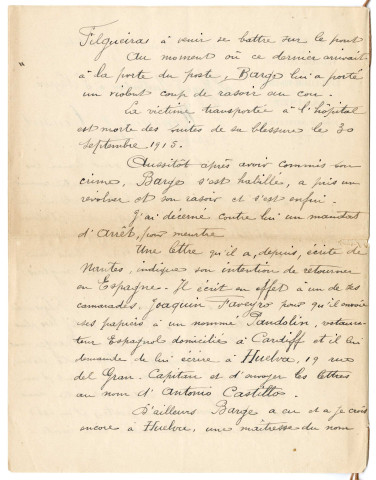 Filgueiras à venir se battre sur le pont
Au moment où ce dernier arrivait
à la porte du poste, Barge lui a porté
un violent coup de rasoir au cou.
La victime transportée à l'hôpital
est morte des suites de sa blessure le 30
septembre 1913.
Aussitôt après avoir commis son
crime, Barge s'est habillé, a pris un
révolver et son rasoir et s'est enfui.
J'ai décerné contre lui un mandat
d'Arrêt, pour meurtre
Une lettre qu'il a, depuis, écrite de
Nantes, indique son intention de retourner
en Espagne. Il écrit en effet à un de ses
camarades, Joaquin pour qu'il envoie
ses papiers à un nommé Bandolin, restaura-
teur Espagnol domicilié à Cardiff et il lui
demande de lui écrire à Huelva, 19 rue
del Gran Capitan et d'envoyer les lettres
au nom d'Antonio Castillo.
D'ailleurs Barge a eu et a je crois
encore à Huelva, une maîtresse du nom